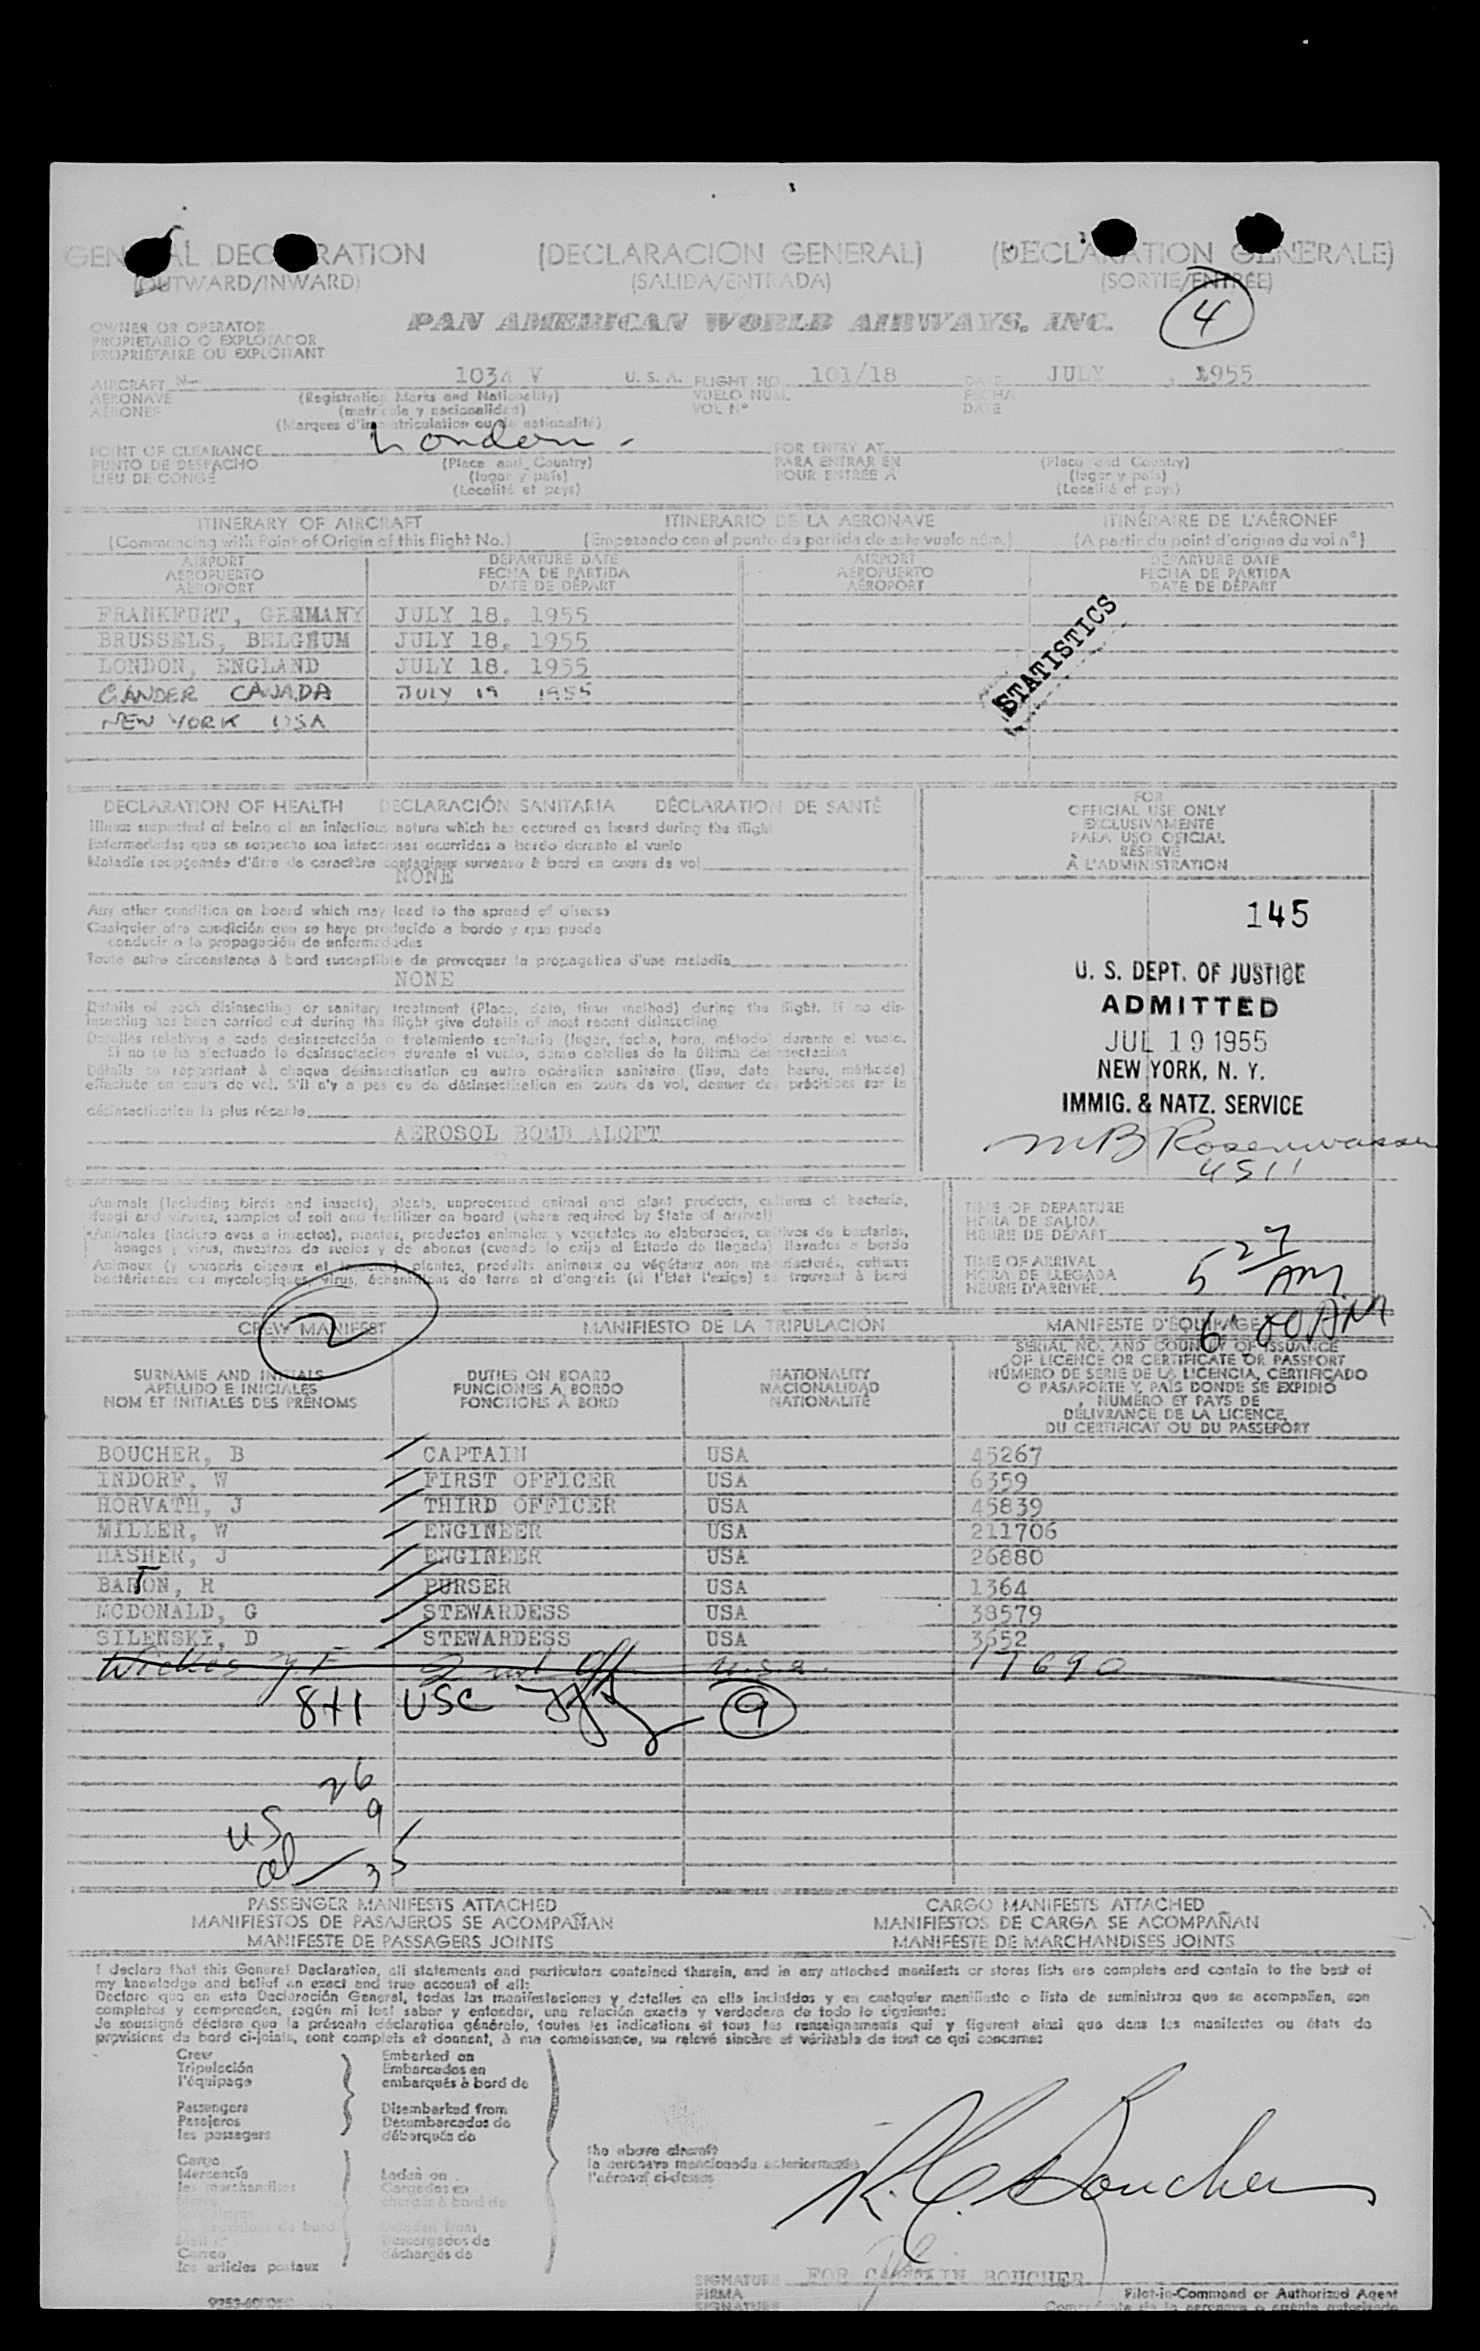 GENERAL DECLARATION (DECLARACION GENERAL) (DECLARATION GENERALE)
(OUTWARD/INWARD) (SALIDA/ENTRADA) (SORTIE/ENTRÉE)
4
OWNER OR OPERATOR
PROPIETARIO O EXPLOTADOR
PROPRIÉTAIRE OU EXPLOITANT
PAN AMERICAN WORLD AIRWAYS, INC.
AIRCRAFT N- 1034 V U. S. A. FLIGHT NO. 101/18 DATE JULY , 1955
AERONAVE (Registration Marks and Nationality) VUELO NUM. FECHA
AÉRONEF (matrícula y nacionalidad) VOL Nº DATE
(Marques d'immatriculation ou de nationalité)
POINT OF CLEARANCE London - FOR ENTRY AT
PUNTO DE DESPACHO (Place and Country) PARA ENTRAR EN (Place and Country)
LIEU DE CONGÉ (lugar y país) POUR ENTRÉE À (lugar y país)
(Localité et pays) (Localité et pays)
ITINERARY OF AIRCRAFT ITINERARIO DE LA AERONAVE ITINÉRAIRE DE L'AÉRONEF
(Commencing with Point of Origin of this flight No.) (Empezando con el punto de partida de este vuelo núm.) (A partir du point d'origine du vol nº)
AIRPORT DEPARTURE DATE AIRPORT DEPARTURE DATE
AEROPUERTO FECHA DE PARTIDA AEROPUERTO FECHA DE PARTIDA
AÉROPORT DATE DE DÉPART AÉROPORT DATE DE DÉPART
FRANKFURT, GERMANY JULY 18, 1955
BRUSSELS, BELGIUM JULY 18, 1955
LONDON, ENGLAND JULY 18, 1955
GANDER CANADA JULY 19 1955
NEW YORK USA
STATISTICS
DECLARATION OF HEALTH DECLARACIÓN SANITARIA DÉCLARATION DE SANTÉ
Illness suspected of being of an infectious nature which has occured on board during the flight
Enfermedades que se sospecha son infecciosas ocurridas a bordo durante el vuelo
Maladie soupçonnée d'être de caractère contagieux survenue à bord en cours de vol
NONE
Any other condition on board which may lead to the spread of disease
Cualquier otra condición que se haya producido a bordo y que pueda
conducir a la propagación de enfermedades
Toute autre circonstance à bord susceptible de provoquer la propagation d'une maladie
NONE
Details of each disinsecting or sanitary treatment (Place, date, time method) during the flight. If no dis-
insecting has been carried out during the flight give details of most recent disinsecting
Detalles relativos a cada desinsectación o tratamiento sanitario (lugar, fecha, hora, método) durante el vuelo.
Si no se ha efectuado la desinsectación durante el vuelo, dense detalles de la última desinsectación
Détails se rapportant à chaque désinsectisation ou autre opération sanitaire (lieu, date, heure, méthode)
effectuée en cours de vol. S'il n'y a pas eu de désinsectisation en cours de vol, donner des précisions sur la
désinsectisation la plus récente
AEROSOL BOMB ALOFT
FOR
OFFICIAL USE ONLY
EXCLUSIVAMENTE
PARA USO OFICIAL
RÉSERVÉ
À L'ADMINISTRATION
145
U. S. DEPT. OF JUSTICE
ADMITTED
JUL 19 1955
NEW YORK, N. Y.
IMMIG. & NATZ. SERVICE
MB Rosenwasser
4511
Animals (Including birds and insects), plants, unprocessed animal and plant products, cultures of bacteria,
fungi and viruses, samples of soil and fertilizer on board (where required by State of arrival)
Animales (incluro aves o insectos), plantas, productos animales y vegetales no elaborados, cultivos de bacterias,
hongos y virus, muestras de suelos y de abonos (cuando lo exija el Estado de llegada) llevados a bordo
Animaux (y compris oiseaux et insectes) plantes, produits animaux ou végétaux non manufacturés, cultures
bactériennes ou mycologiques, virus, échantillons de terre et d'engrais (si l'Etat l'exige) se trouvant à bord
TIME OF DEPARTURE
HORA DE SALIDA
HEURE DE DÉPART
TIME OF ARRIVAL
HORA DE LLEGADA
HEURE D'ARRIVÉE
5 27 AM.
6 00 AM
2
CREW MANIFEST MANIFIESTO DE LA TRIPULACIÓN MANIFESTE D'ÉQUIPAGE
SURNAME AND INITIALS
APELLIDO E INICIALES
NOM ET INITIALES DES PRÉNOMS
DUTIES ON BOARD
FUNCIONES A BORDO
FONCTIONS À BORD
NATIONALITY
NACIONALIDAD
NATIONALITÉ
SERIAL NO. AND COUNTRY OF ISSUANCE
OF LICENCE OR CERTIFICATE OR PASSPORT
NÚMERO DE SERIE DE LA LICENCIA, CERTIFICADO
O PASAPORTE Y PAÍS DONDE SE EXPIDIÓ
NUMÉRO ET PAYS DE
DÉLIVRANCE DE LA LICENCE,
DU CERTIFICAT OU DU PASSEPORT
BOUCHER, B CAPTAIN USA 45267
INDORF, W FIRST OFFICER USA 6359
HORVATH, J THIRD OFFICER USA 45839
MILLER, W ENGINEER USA 211706
HASHER, J ENGINEER USA 26880
BARTON, R PURSER USA 1364
MCDONALD, G STEWARDESS USA 38579
SILENSKY, D STEWARDESS USA 3652
Wickes J. F 2nd Off. U.S.A. 17690
8+1 USC 9
26
9
US
35
PASSENGER MANIFESTS ATTACHED CARGO MANIFESTS ATTACHED
MANIFIESTOS DE PASAJEROS SE ACOMPAÑAN MANIFIESTOS DE CARGA SE ACOMPAÑAN
MANIFESTE DE PASSAGERS JOINTS MANIFESTE DE MARCHANDISES JOINTS
I declare that this General Declaration, all statements and particulars contained therein, and in any attached manifests or stores lists are complete and contain to the best of
my knowledge and belief an exact and true account of all:
Declaro que en esta Declaración General, todas las manifestaciones y detalles en ella incluidos y en cualquier manifiesto o lista de suministros que se acompañen, son
completos y comprenden, según mi leal saber y entender, una relación exacta y verdadera de todo lo siguiente:
Je soussigné déclare que la présente déclaration générale, toutes les indications et tous les renseignements qui y figurent ainsi que dans les manifestes ou états de
provisions de bord ci-joints, sont complets et donnent, à ma connaissance, un relevé sincère et véritable de tout ce qui concerne:
Crew
Tripulación
l'équipage
Passengers
Pasajeros
les passagers
Cargo
Mercancía
les marchandises
Correo
les articles postaux
Embarked on
Embarcados en
embarqués à bord de
Disembarked from
Desembarcados de
débarqués de
Laden on
Cargados en
chargés à bord de
Unladen from
Descargados de
déchargés de
the above aircraft
la aeronave mencionada anteriormente
l'aéronef ci-dessus
R. C. Boucher
SIGNATURE FOR CAPTAIN BOUCHER
FIRMA Pilot-in-Command or Authorized Agent
SIGNATURE